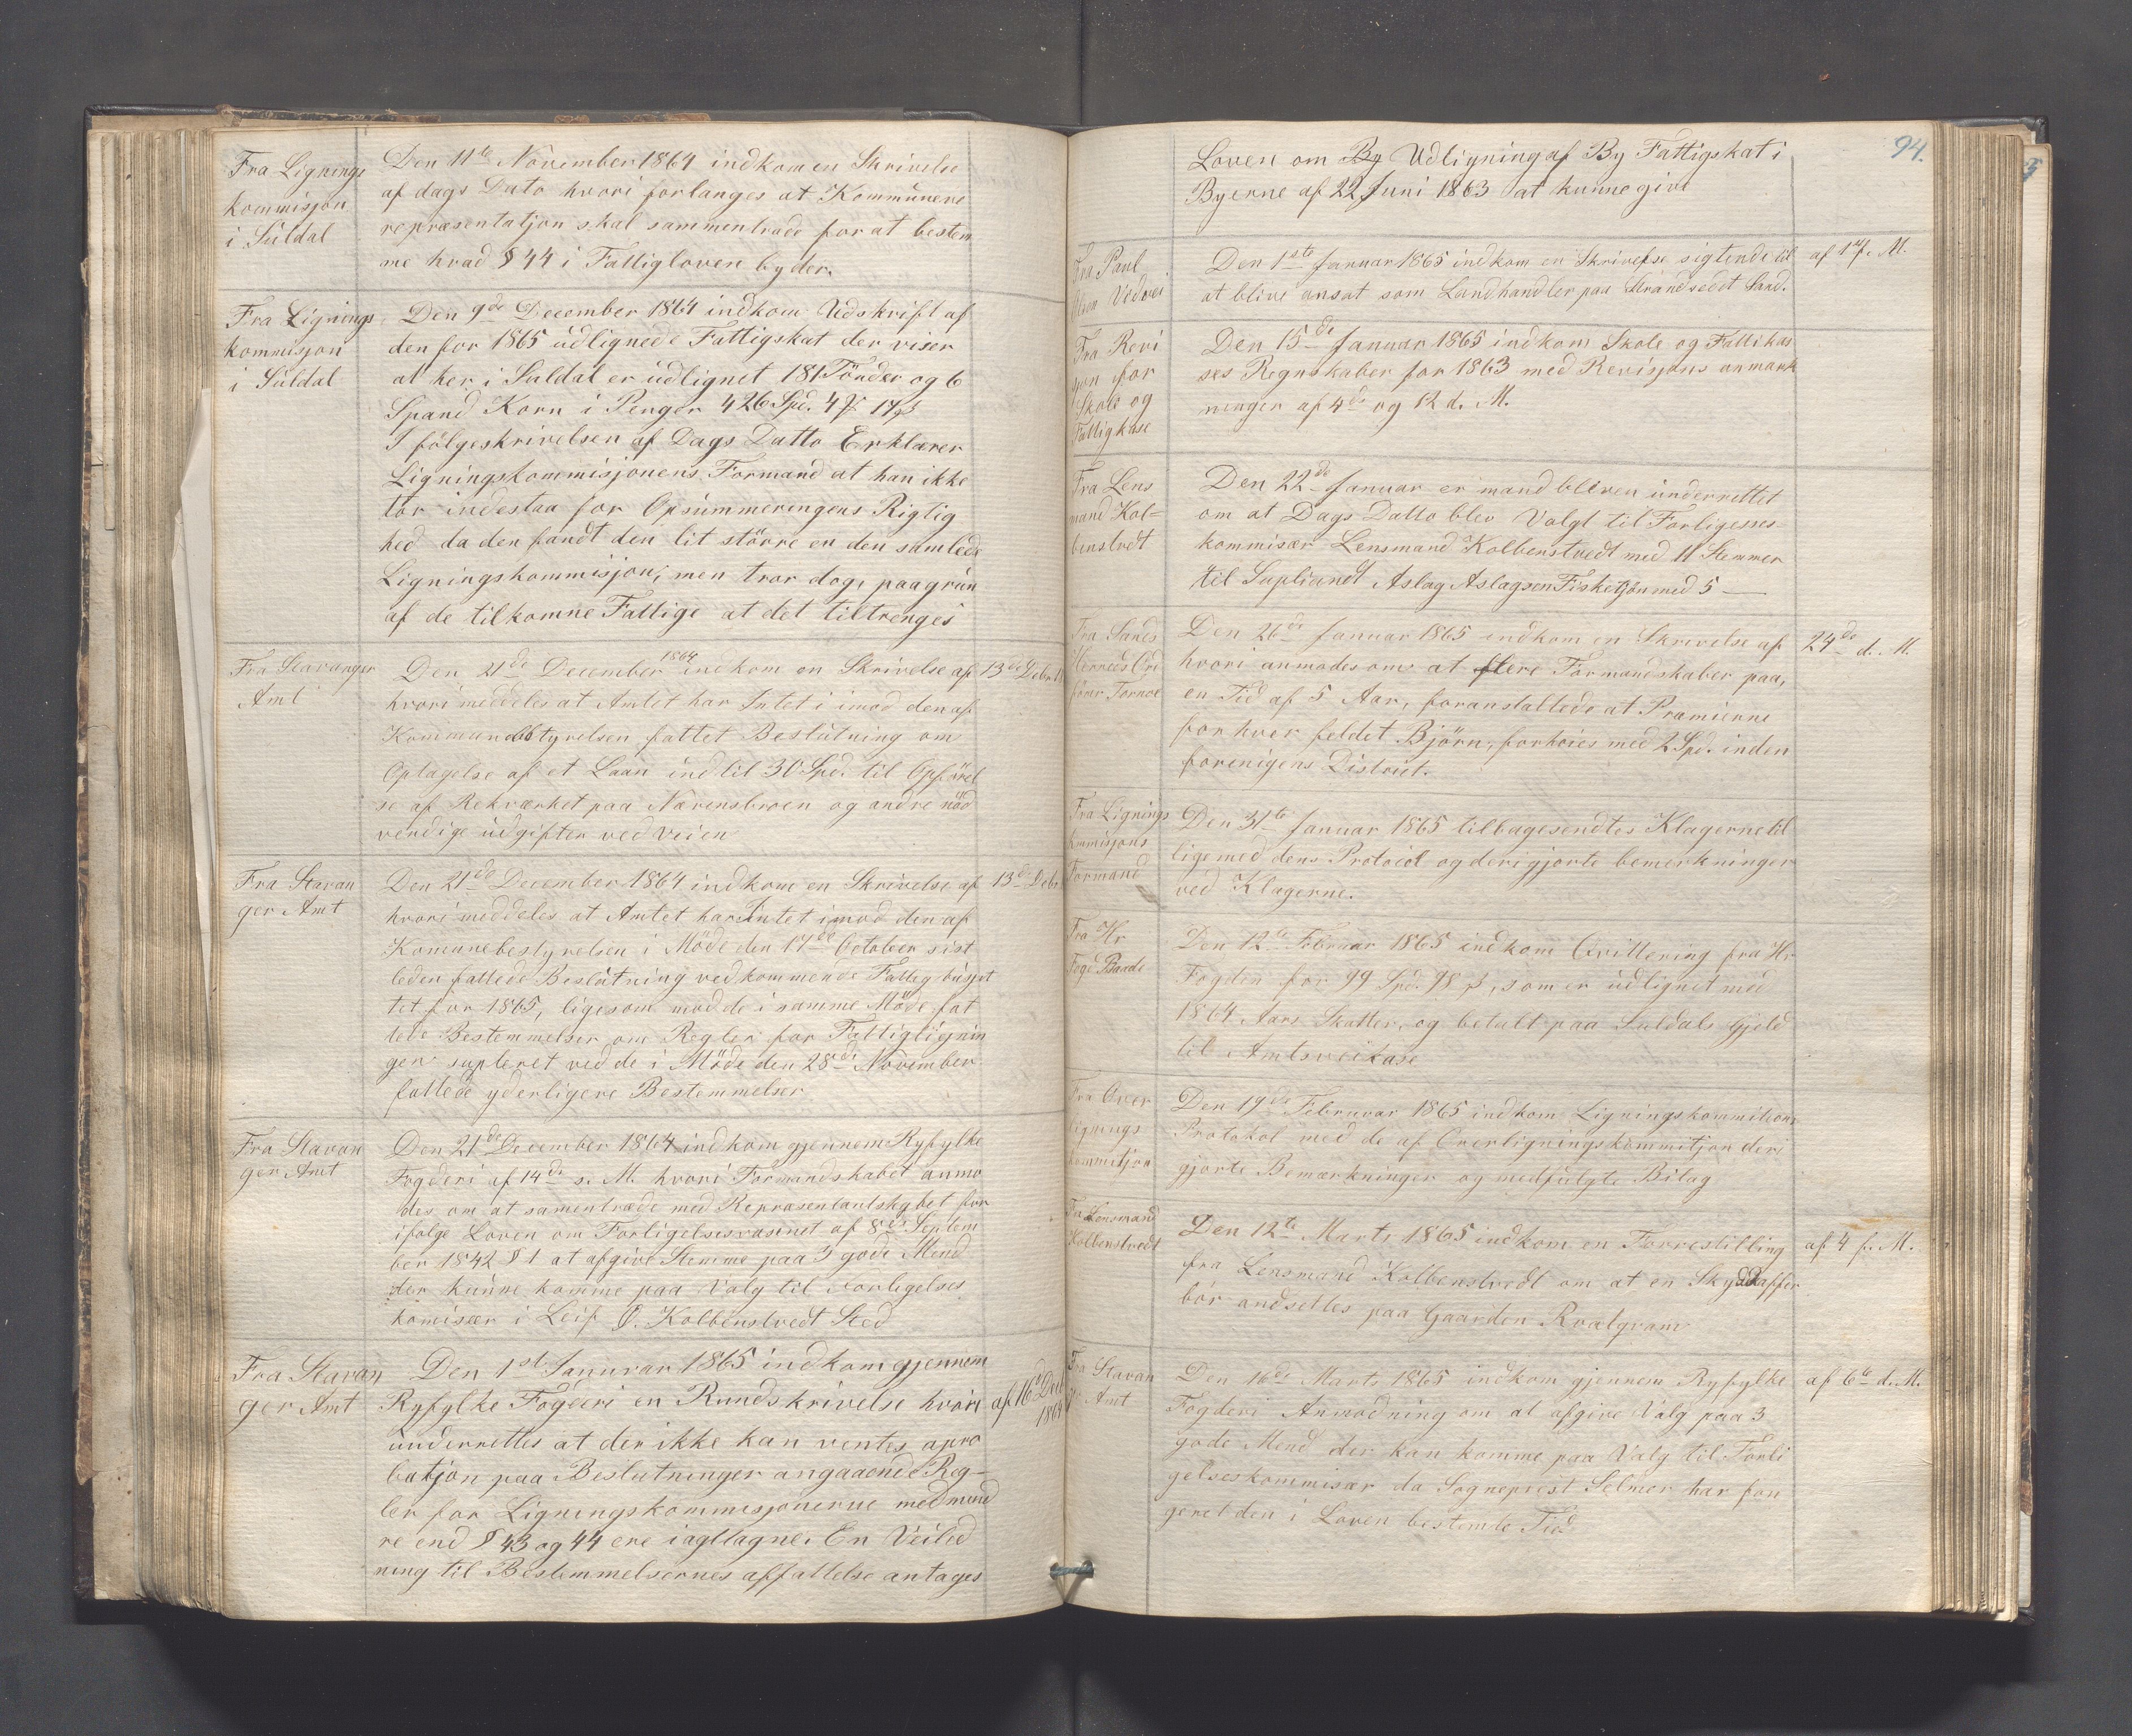 Fra Lignings
kommisjon
i Suldal
Den 11te November 1864 indkom en Skrivelse
af dags Dato hvori forlanges at Kommunens
repræsentatjon skal sammentræde for at bestem
me hvad § 44 i Fattigloven byder.
Fra Lignings
kommisjon
i Suldal
Den 9de December 1864 indkom Udskrift af
den for 1865 udlignede Fattigskat der viser
at her i Suldal er udlignet 181 Tönder og 6
Spand Korn i Penger 426 Spd. 4 17
I fölgeskrivelsen af Dags Datto Erklærer
Ligningskommisjonens Formand at han ikke
tör indestaa for Opsummeringens Rigtig
hed da den fandt den lit större en den samlede
Ligningskommisjon, men tror dog, paagrun
af de tilkomne Fattige at det tiltrenges
Fra Stavanger
Amt
Den 21de December 1864 indkom en Skrivelse af 13de Debr.
hvori meddeles at Amtet har Intet i imod den af
Kommunebestyrelsen fattet Beslutning om
Optagelse af et Laan indtil 30 Spd. til Opförel
se af Rekværket paa Narensbroen og andre nöd
vendige udgifter ved Veien
Fra Stavan
ger Amt
Den 21de December 1864 indkom en Skrivelse af 13de Debr
hvori meddeles at Amtet har Intet imod den af
Komunebestyrelsen i Möde den 17de October sist
leden fattede Beslutning vedkommende Fattig budjet
tet for 1865, ligesom mod de i samme Möde fat
tede Bestemmelser om Regler for Fattiglignin
gen supleret ved de i Möde den 28de November
fattede yderligere Bestemmelser
Fra Stavan
ger Amt
Den 21de December 1864 indkom gjennem Ryfylke
Fogderi af 14de s. M. hvori Formandskabet anmo
des om at samentræde med Repræsentantskabet for
ifölge Loven om Forligelsesvæsnet af 8de Septem
ber 1842 § 1 at afgive Stemme paa 3 gode Mend
der kunne komme paa Valg til Forligelses
komisær i Leif O. Kolbenstvedt Sted
Fra Stavan
ger Amt
Den 1ste Januvar 1865 indkom gjennem
Ryfylke Fogderi en Rundskrivelse hvori af 16de Debr 1864
underrettes at der ikke kan ventes apro
batjon paa Beslutninger angaaende Reg-
ler for Ligningskommisjonerne med mind
re end § 43 og 44 ere iagttagne. En Veiled
ning til Bestemmelsernes affattelse antages
94.
Loven om By Udligning af By Fattigskat i
Byerne af 22 Juni 1863 at kunne give
Fra Paul
Olsen Vedvei
Den 1ste Januar 1865 indkom en Skrivelse sigtende til af 17 f. M.
at blive ansat som Landhandler paa Strandstedet Sand.
Fra Revi
sjon for
Skole og
Fattigkase
Den 15de Januar 1865 indkom Skole og Fattikas
ses Regnskaber for 1863 med Revisjons anmærk
ninger af 4de og 12 d. M.
Fra Lens
mand Kol-
benstvdt
Den 22de Januar er mand bleven underrettet
om at Dags Datto blev Valgt til Forligesses
kommisær Lensmand Kolbenstvedt med 11 Stemmer
til Supliandt Aslag Aslagsen Fisketjön med 5 —
Fra Sands
Herreds Ord
förer Tornoe
Den 26de Januar 1865 indkom en Skrivelse af 24de d. M.
hvori anmodes om at flere Formandskaber paa,
en Tid af 5 Aar, foranstaltede at Præmierne
for hver feldet Björn, forhöies med 2 Spd. inden
forenigens District.
Fra Lignings
kommisjons
Formand
Den 31te Januar 1865 tilbagesendtes Klagerne til
ligemed dens Protocol og derigjorte bemerkninger
ved Klagerne.
Fra Hr
Foged Baade
Den 12te Februar 1865 indkom Qvittering fra Hr
Fogden for 99 Spd. 98 ß, som er udlignet med
1864 Aars Skatter, og betalt paa Suldals Gjeld
til Amtsveikase
Fra Over
lignings
kommitjon
Den 19de Februvar 1865 indkom Ligningskommitions
Protokol med de af Overligningskommitjon deri
gjorte Bemærkninger og medfulgte Bilag
Fra Lensmand
Kolbenstvedt
Den 12te Marts 1865 indkom en Forrestilling af 4 f. M.
fra Lensmand Kolbenstvedt om at en Skydsskaffer
bör andsettes paa Gaarden Kvalgram
Fra Stavan
ger Amt
Den 16de Marts 1865 indkom gjennem Ryfylke af 6te d. M.
Fogderi Anmodning om at afgive Valg paa 3
gode Mend der kan komme paa Valg til Forli
gelseskommisær da Sogneprest Selmer har fon
geret den i Loven bestemte Tid